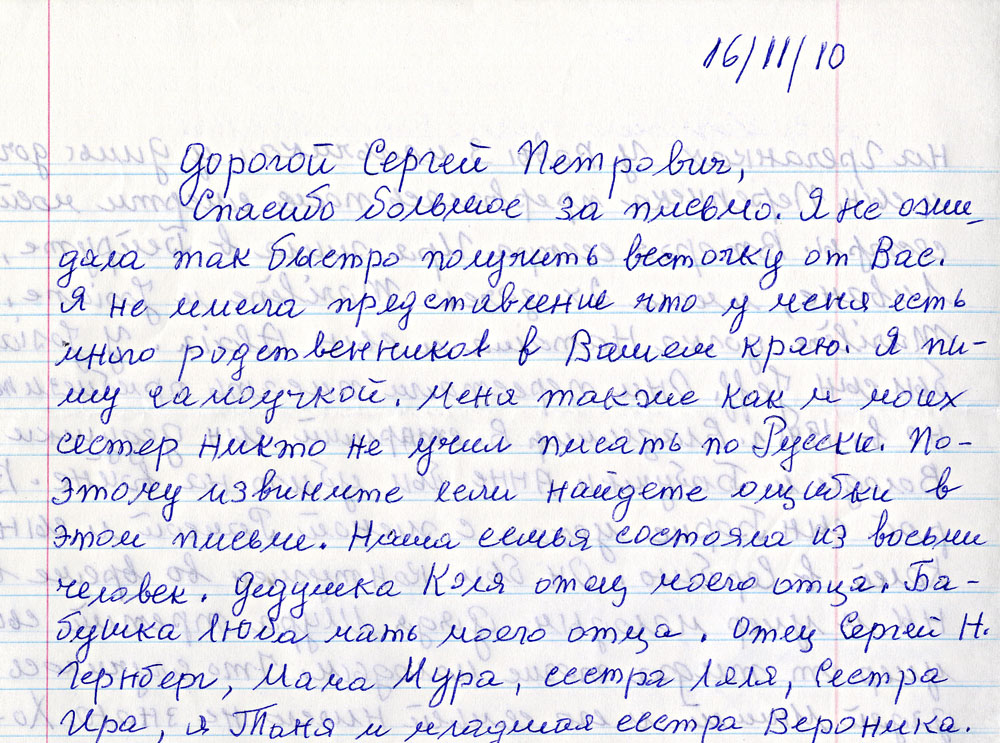 16/11/10
Дорогой Сергей Петрович,
Спасибо большое за письмо. Я не ожи-
дала так быстро получить весточку от Вас.
Я не имела представление что у меня есть
много родственников в Вашем краю. Я пи-
шу самоучкой. Меня также как и моих
сестер никто не учил писать по Русски. По-
этому извините если найдете ошибки в
этом письме. Наша семья состояла из восьми
человек. Дедушка Коля отец моего отца. Ба-
бушка Люба мать моего отца. Отец Сергей Н.
Гернберг, Мама Мура, сестра Ляля, Сестра
Ира, я Таня и младшая сестра Вероника.